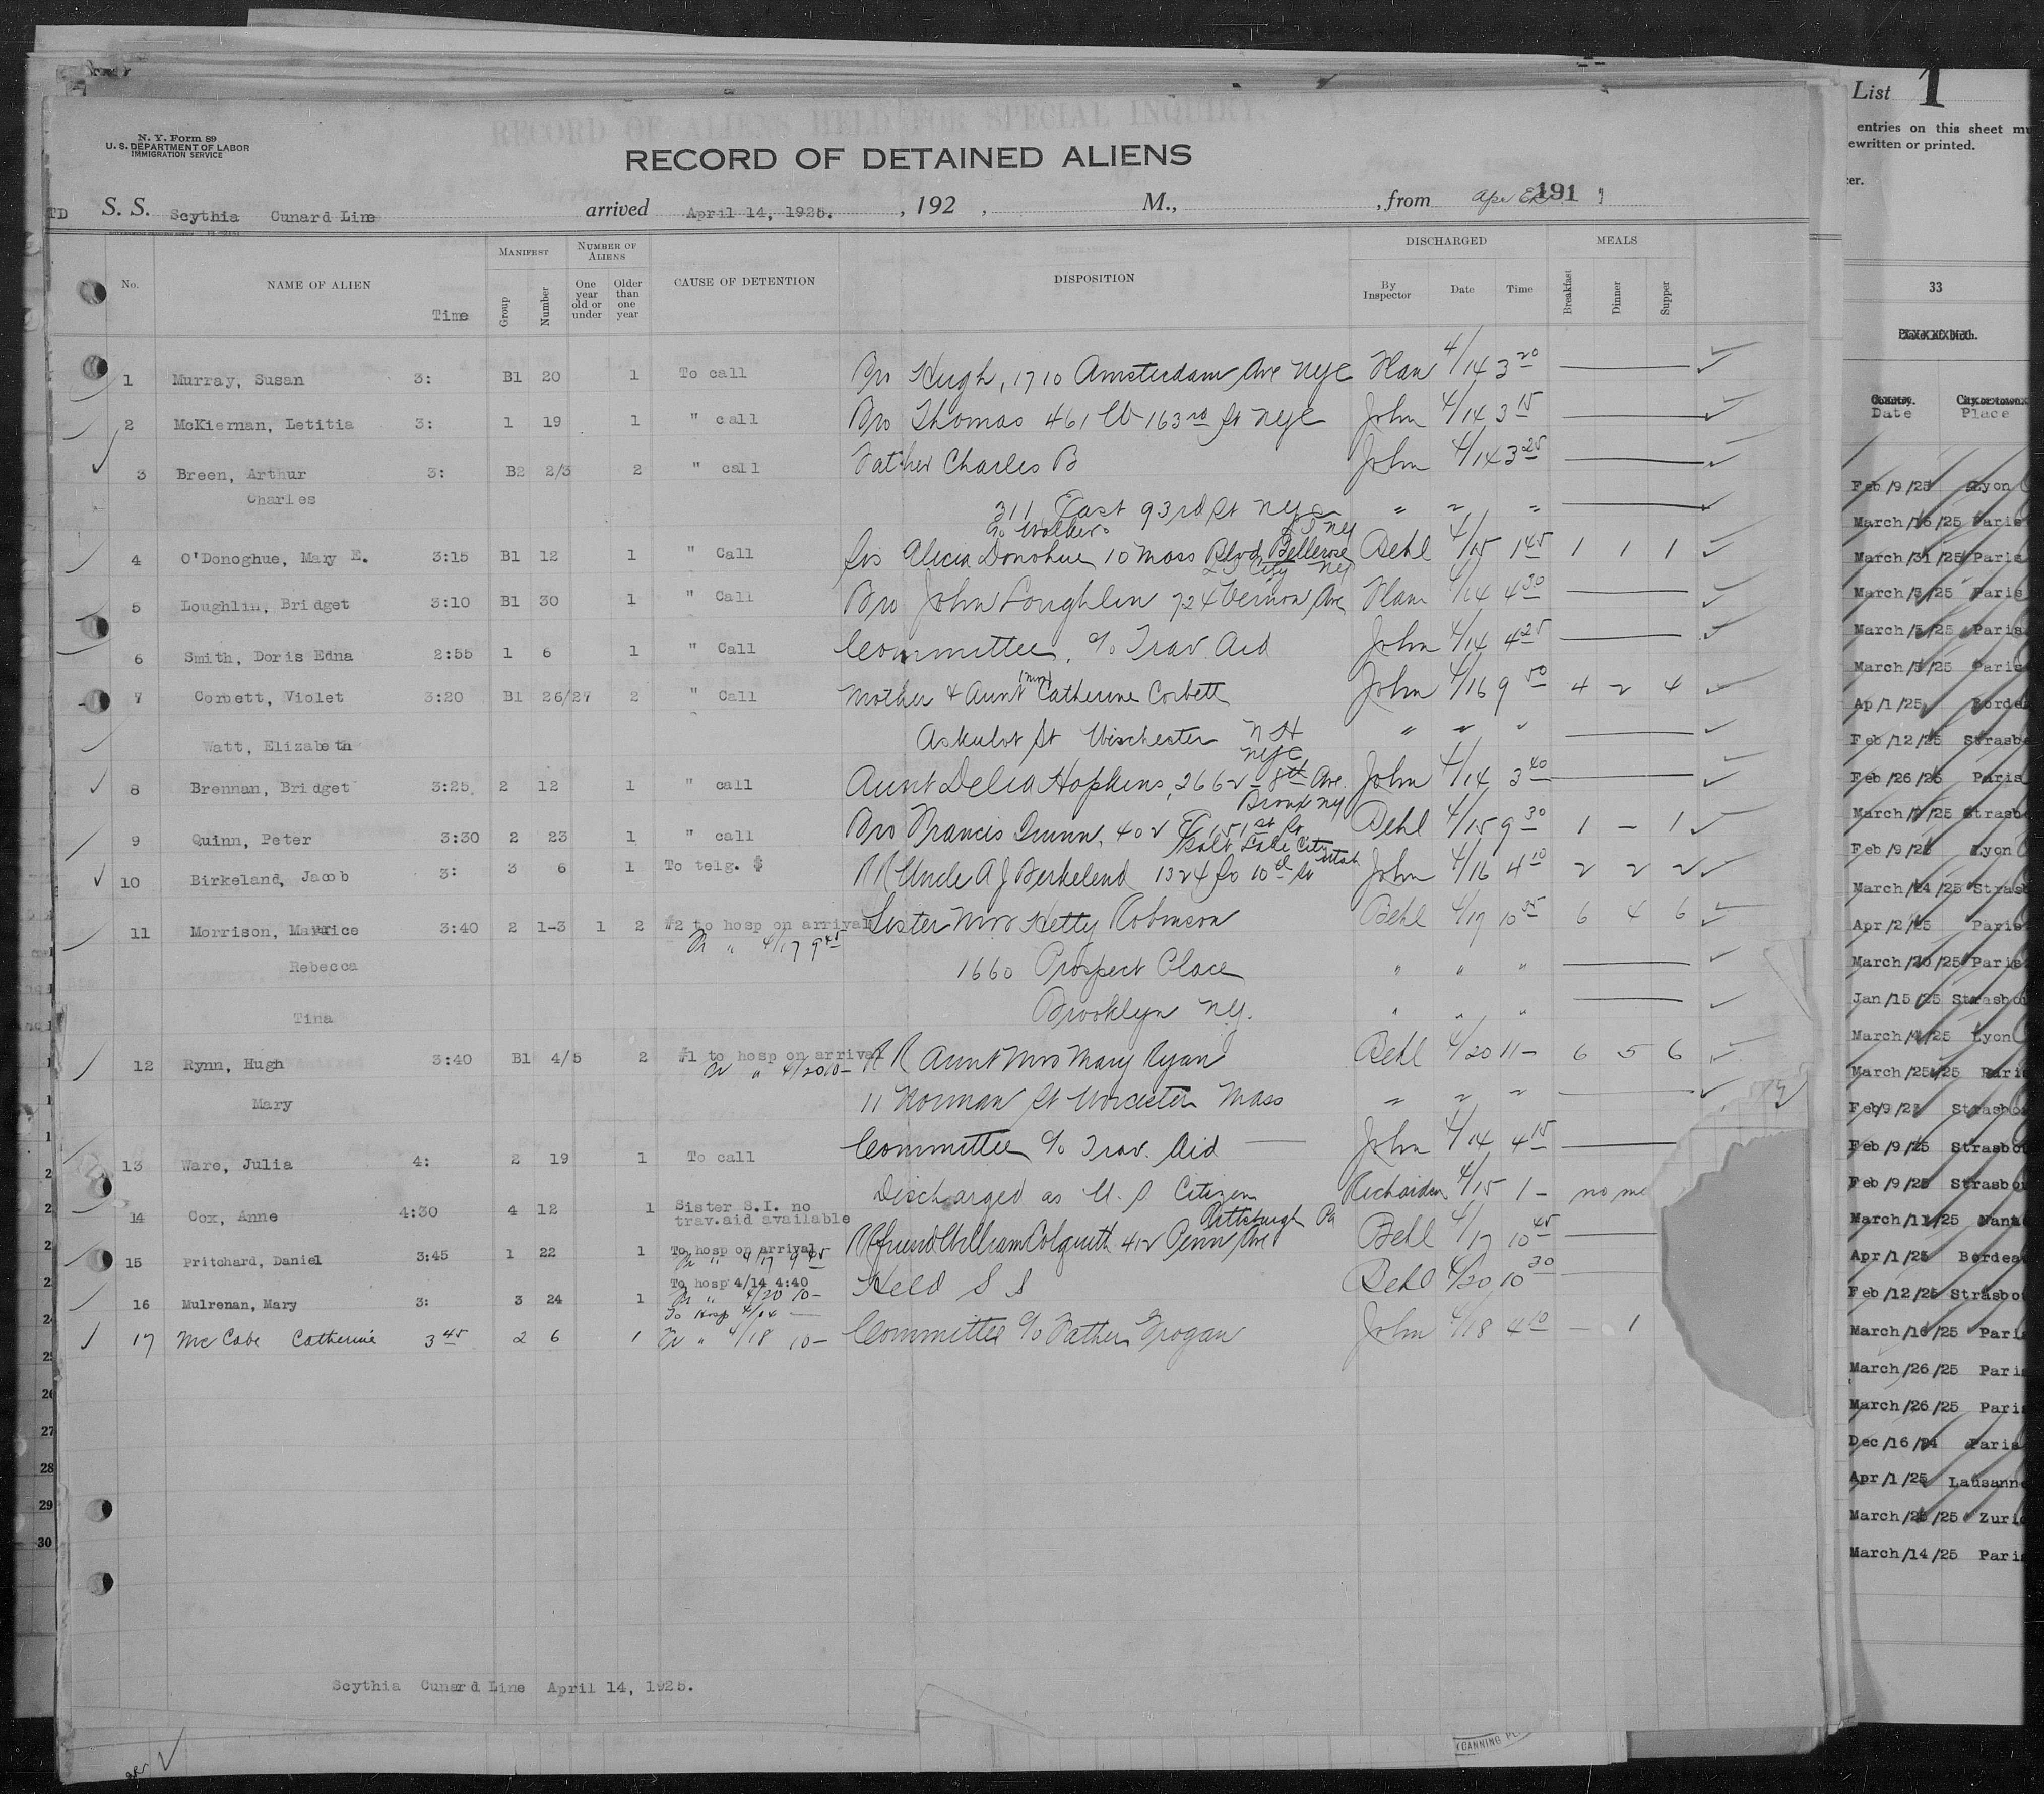 N. Y. Form 89
U. S. DEPARTMENT OF LABOR
IMMIGRATION SERVICE
RECORD OF ALIENS HELD FOR SPECIAL INQUIRY
RECORD OF DETAINED ALIENS
TD S. S. Scythia Cunard Line arrived April 14, 1925. , 192 , M., , from 191
No. NAME OF ALIEN Time MANIFEST Group Number NUMBER OF ALIENS One year old or under Older than one year CAUSE OF DETENTION DISPOSITION DISCHARGED By Inspector Date Time MEALS Breakfast Dinner Supper
1 Murray, Susan 3: B1 20 1 To call Bro Hugh, 1710 Amsterdam Ave NYC 4/14 3 20
2 McKiernan, Letitia 3: 1 19 1 " call Bro Thomas 461 W 163rd St NYC John 4/14 3 15
3 Breen, Arthur 3: B2 2/3 2 " call Father Charles B John 4/14 3 25
Charles 311 East 93rd St NYC " " "
4 O'Donoghue, Mary E. 3:15 B1 12 1 " Call Sis Alicia Donohue 10 Mass Blvd Bellerose Behl 4/15 1 45 1 1 1
5 Loughlin, Bridget 3:10 B1 30 1 " Call Bro John Loughlin 724 Vernon Ave L I City NY 4/14 4 30
6 Smith, Doris Edna 2:55 1 6 1 " Call Committee, c/o Trav. Aid John 4/14 4 25
7 Corbett, Violet 3:20 B1 26/27 2 " Call Mother & Aunt (Mrs) Catherine Corbett John 4/16 9 50 4 2 4
Watt, Elizabeth Askulot St Winchester N H " " "
8 Brennan, Bridget 3:25 2 12 1 " call Aunt Delia Hopkins, 2662 - 8th Ave. NYC John 4/14 3 40
9 Quinn, Peter 3:30 2 23 1 " call Bro Francis Quinn, 402 E 151st St Bronx NY Behl 4/15 9 30 1 - 1
10 Birkeland, Jacob 3: 3 6 1 To telg. $ RR Uncle A J Berkelend 1324 So 10th St Salt Lake City Utah John 4/16 4 10 2 2 2
11 Morrison, Maurice 3:40 2 1-3 1 2 #2 to hosp on arrival Sister Mrs Hetty Robinson Behl 4/17 10 35 6 4 6
" 4/17 9 45
Rebecca 1660 Prospect Place " " "
Tina Brooklyn N.Y. " " "
12 Rynn, Hugh 3:40 B1 4/5 2 #1 to hosp on arrival R R Aunt Mrs Mary Ryan Behl 4/20 11- 6 5 6
" 4/20 10-
Mary 11 Norman St Worcester Mass " " "
13 Ware, Julia 4: 2 19 1 To call Committee c/o Trav. Aid John 4/14 4 15
14 Cox, Anne 4:30 4 12 1 Sister S.I. no trav.aid available Discharged as U. S. Citizen 4/15 1 - no me
15 Pritchard, Daniel 3:45 1 22 1 To hosp on arrival RR friend William Colquith 412 Penn Ave Pittsburgh Pa Behl 4/17 10 45
" 4/17 9 45
16 Mulrenan, Mary 3: 3 24 1 To hosp 4/14 4:40 Held S I Behl 4/20 10 30
" 4/20 10-
17 McCabe Catherine 3 45 2 6 1 To Hosp 4/14 Committee c/o Father Grogan John 4/18 4 10 - 1
" 4/18 10-
Scythia Cunard Line April 14, 1925.
List 1
entries on this sheet mu
ewritten or printed.
cer.
33
Date Place
Feb/9/25 Lyon
March/16/25 Paris
March/31/25 Paris
March/3/25 Paris
March/3/25 Paris
March/3/25 Paris
Ap/1/25 Bordea
Feb/12/25 Strasbo
Feb/26/25 Paris
March/9/25 Strasbo
Feb/9/25 Lyon
March/24/25 Strasb
Apr/2/25 Paris
March/30/25 Paris
Jan/15/25 Strasbou
March/4/25 Lyon
March/25/25 Pari
Feb/9/25 Strasbo
Feb/9/25 Strasbo
Feb/9/25 Strasbou
March/11/25 Nant
Apr/1/25 Bordea
Feb/12/25 Strasbou
March/16/25 Pari
March/26/25 Pari
March/26/25 Paris
Dec/16/24 Paris
Apr/1/25 Lausanne
March/25/25 Zuri
March/14/25 Pari
26
27
28
29
30